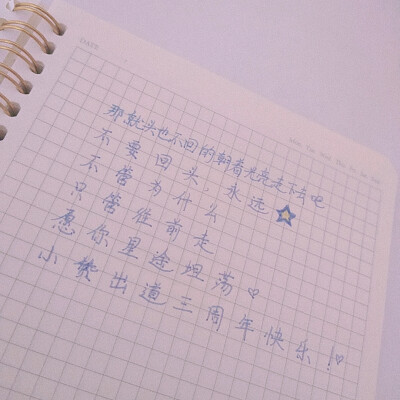 DATE
那就头也不回的朝着光亮走下去吧
不要回头，永远
不管为什么
只管往前走
愿你星途坦荡♡
小贷出道三周年快乐！♡